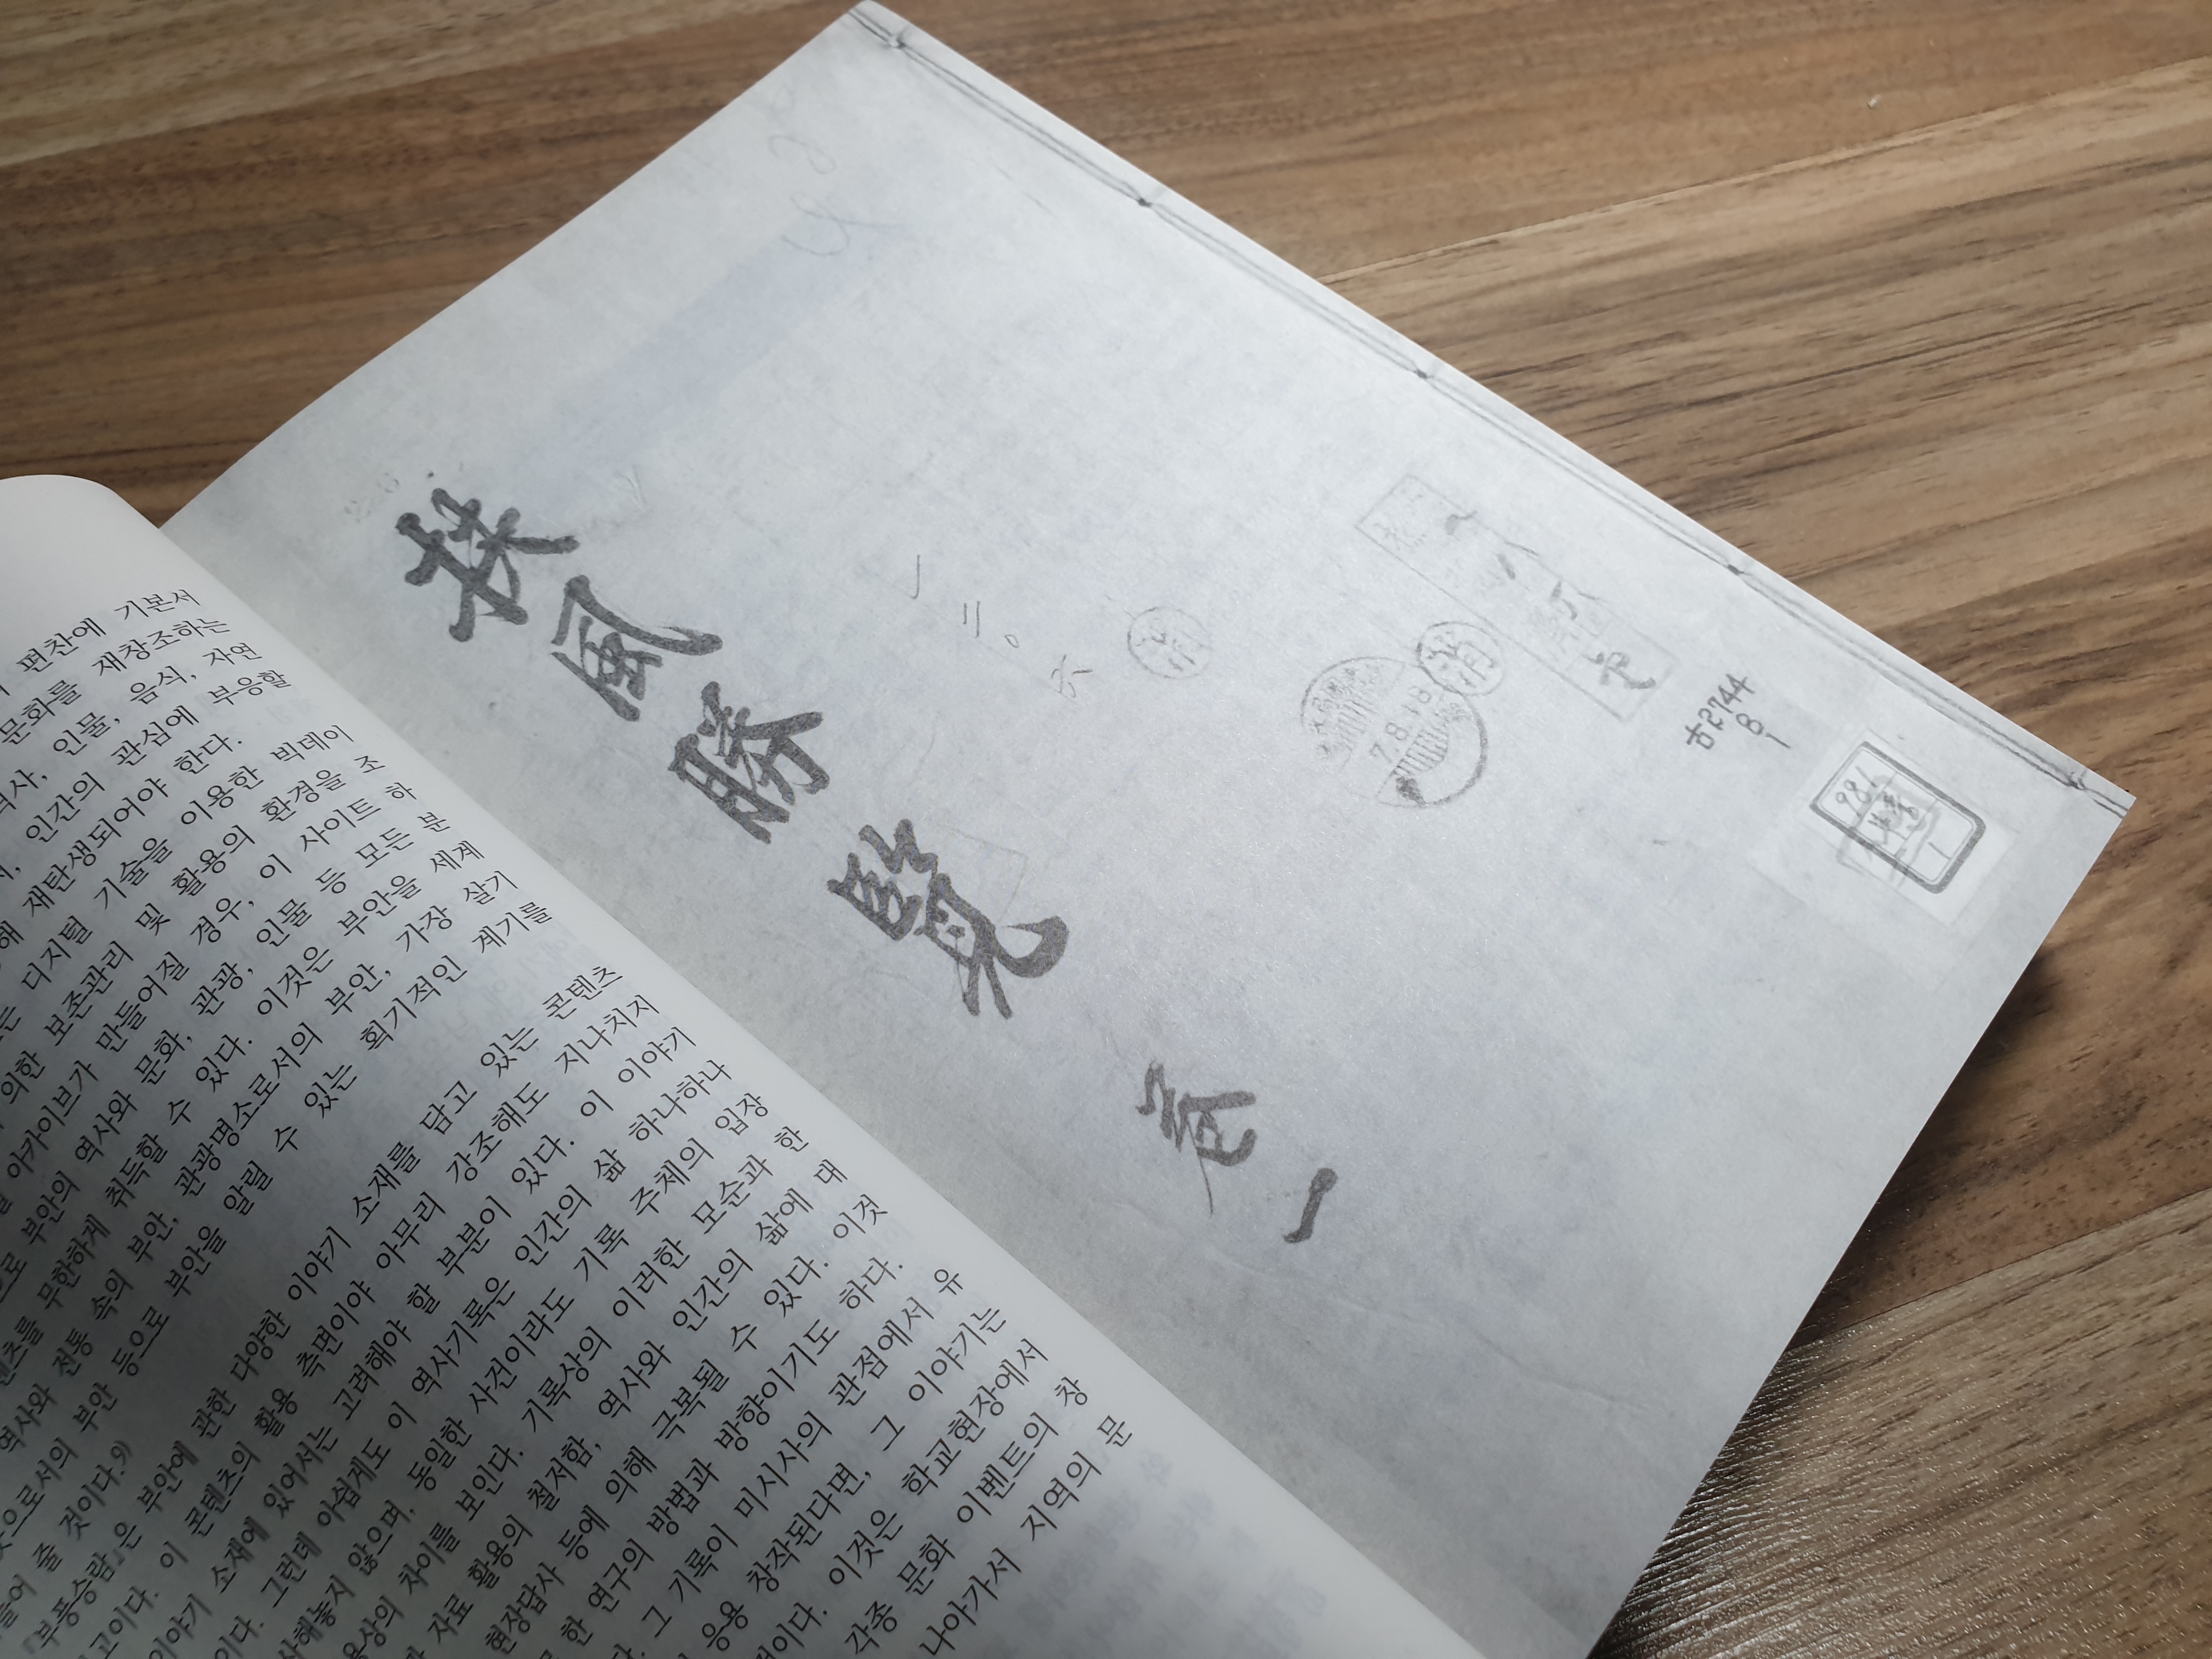 편찬에 기본서
문화를 재창조하는
역사, 인물, 음식, 자연
인간의 관심에 부응할
해 재탄생되어야 한다.
는 디지털 기술을 이용한 빅데이
의한 보존관리 및 활용의 환경을 조
아카이브가 만들어질 경우, 이 사이트 하
으로 부안의 역사와 문화, 관광, 인물 등 모든 분
텐츠를 무한하게 취득할 수 있다. 이것은 부안을 세계
역사와 전통 속의 부안, 관광명소로서의 부안, 가장 살기
것으로서의 부안 등으로 부안을 알릴 수 있는 획기적인 계기를
들어 줄 것이다.9)
『부풍승람』은 부안에 관한 다양한 이야기 소재를 담고 있는 콘텐츠
고이다. 이 콘텐츠의 활용 측면이야 아무리 강조해도 지나치지
이야기 소재에 있어서는 고려해야 할 부분이 있다. 이 이야기
이다. 그런데 아쉽게도 이 역사기록은 인간의 삶 하나하나
사해놓지 않으며, 동일한 사건이라도 기록 주체의 입장
용상의 차이를 보인다. 기록상의 이러한 모순과 한
자료 활용의 철저함, 역사와 인간의 삶에 대
현장답사 등에 의해 극복될 수 있다. 이것
한 연구의 방법과 방향이기도 하다.
그 기록이 미시사의 관점에서 유
응용 창작된다면, 그 이야기는
것이다. 이것은 학교현장에서
각종 문화 이벤트의 창
나아가서 지역의 문
扶風勝覽 卷一
一三〇六
消
消
7.8.18
古2744
8
1